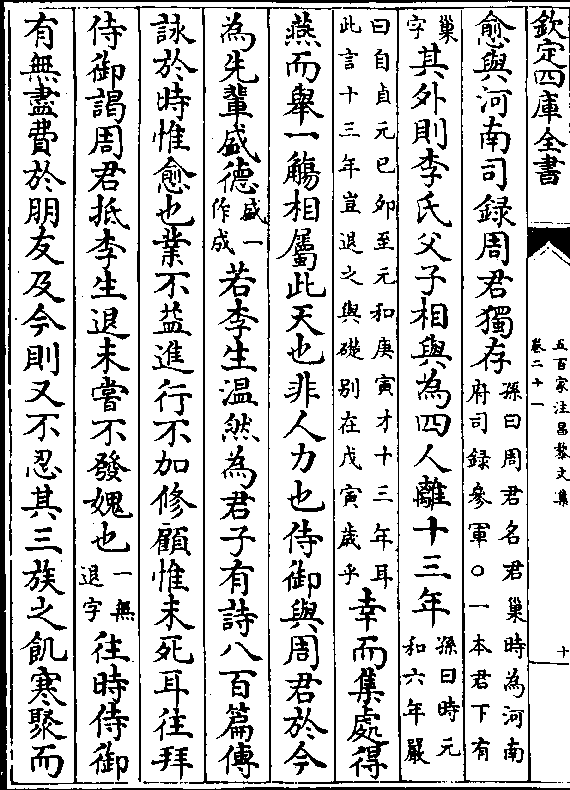 欽定四庫全書
五百家注昌黎文集
卷二十一
十
愈與河南司録周君獨存孫曰周君名君巢時為河南府司録參軍○一本君下有
巢字其外則李氏父子相與為四人離十三年孫曰時元和六年嚴
曰自貞元已夘至元和庚寅才十三年耳此言十三年豈退之與礎别在戊寅歲乎幸而集處得
燕而舉一觴相屬此天也非人力也侍御與周君於今
為先輩盛德盛一作成若李生温然為君子有詩八百篇傳
詠於時惟愈也業不益進行不加修顧惟未死耳往拜
侍御謁周君抵李生退未嘗不發媿也一無退字往時侍御
有無盡費於朋友及今則又不忍其三族之飢寒聚而